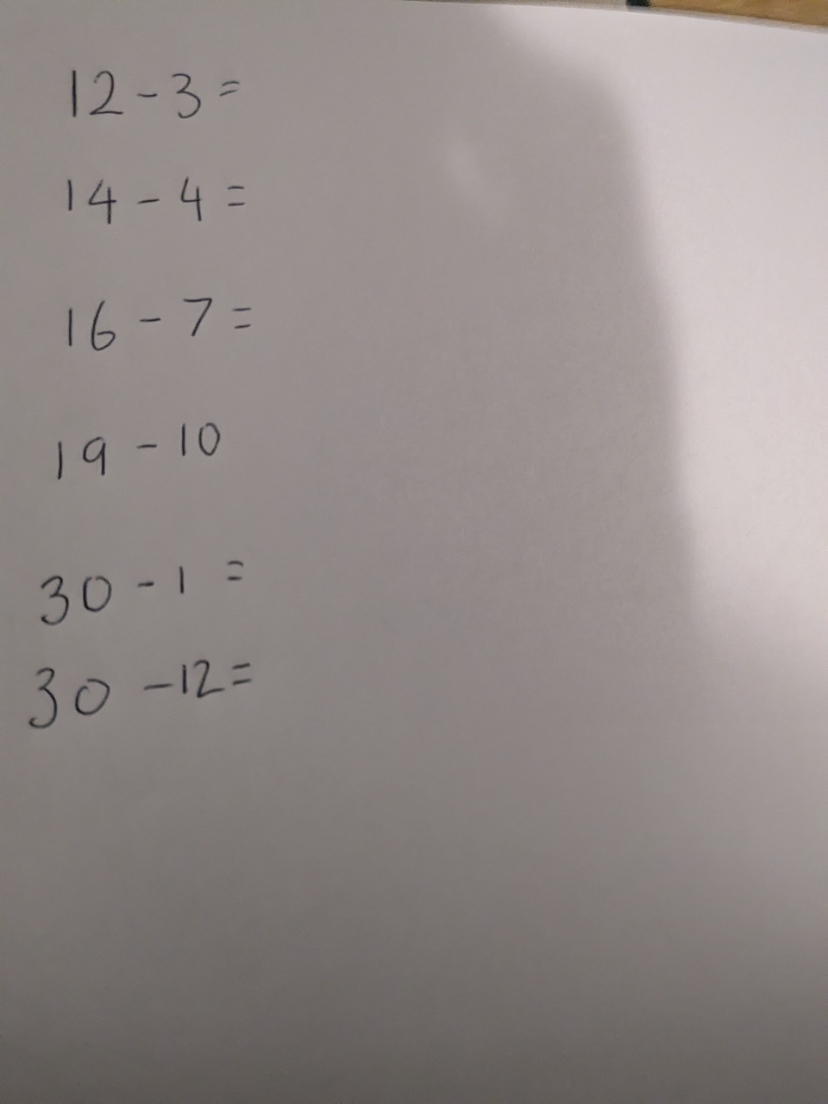 12-3=
14-4=
16-7=
19-10
30-1=
30-12=